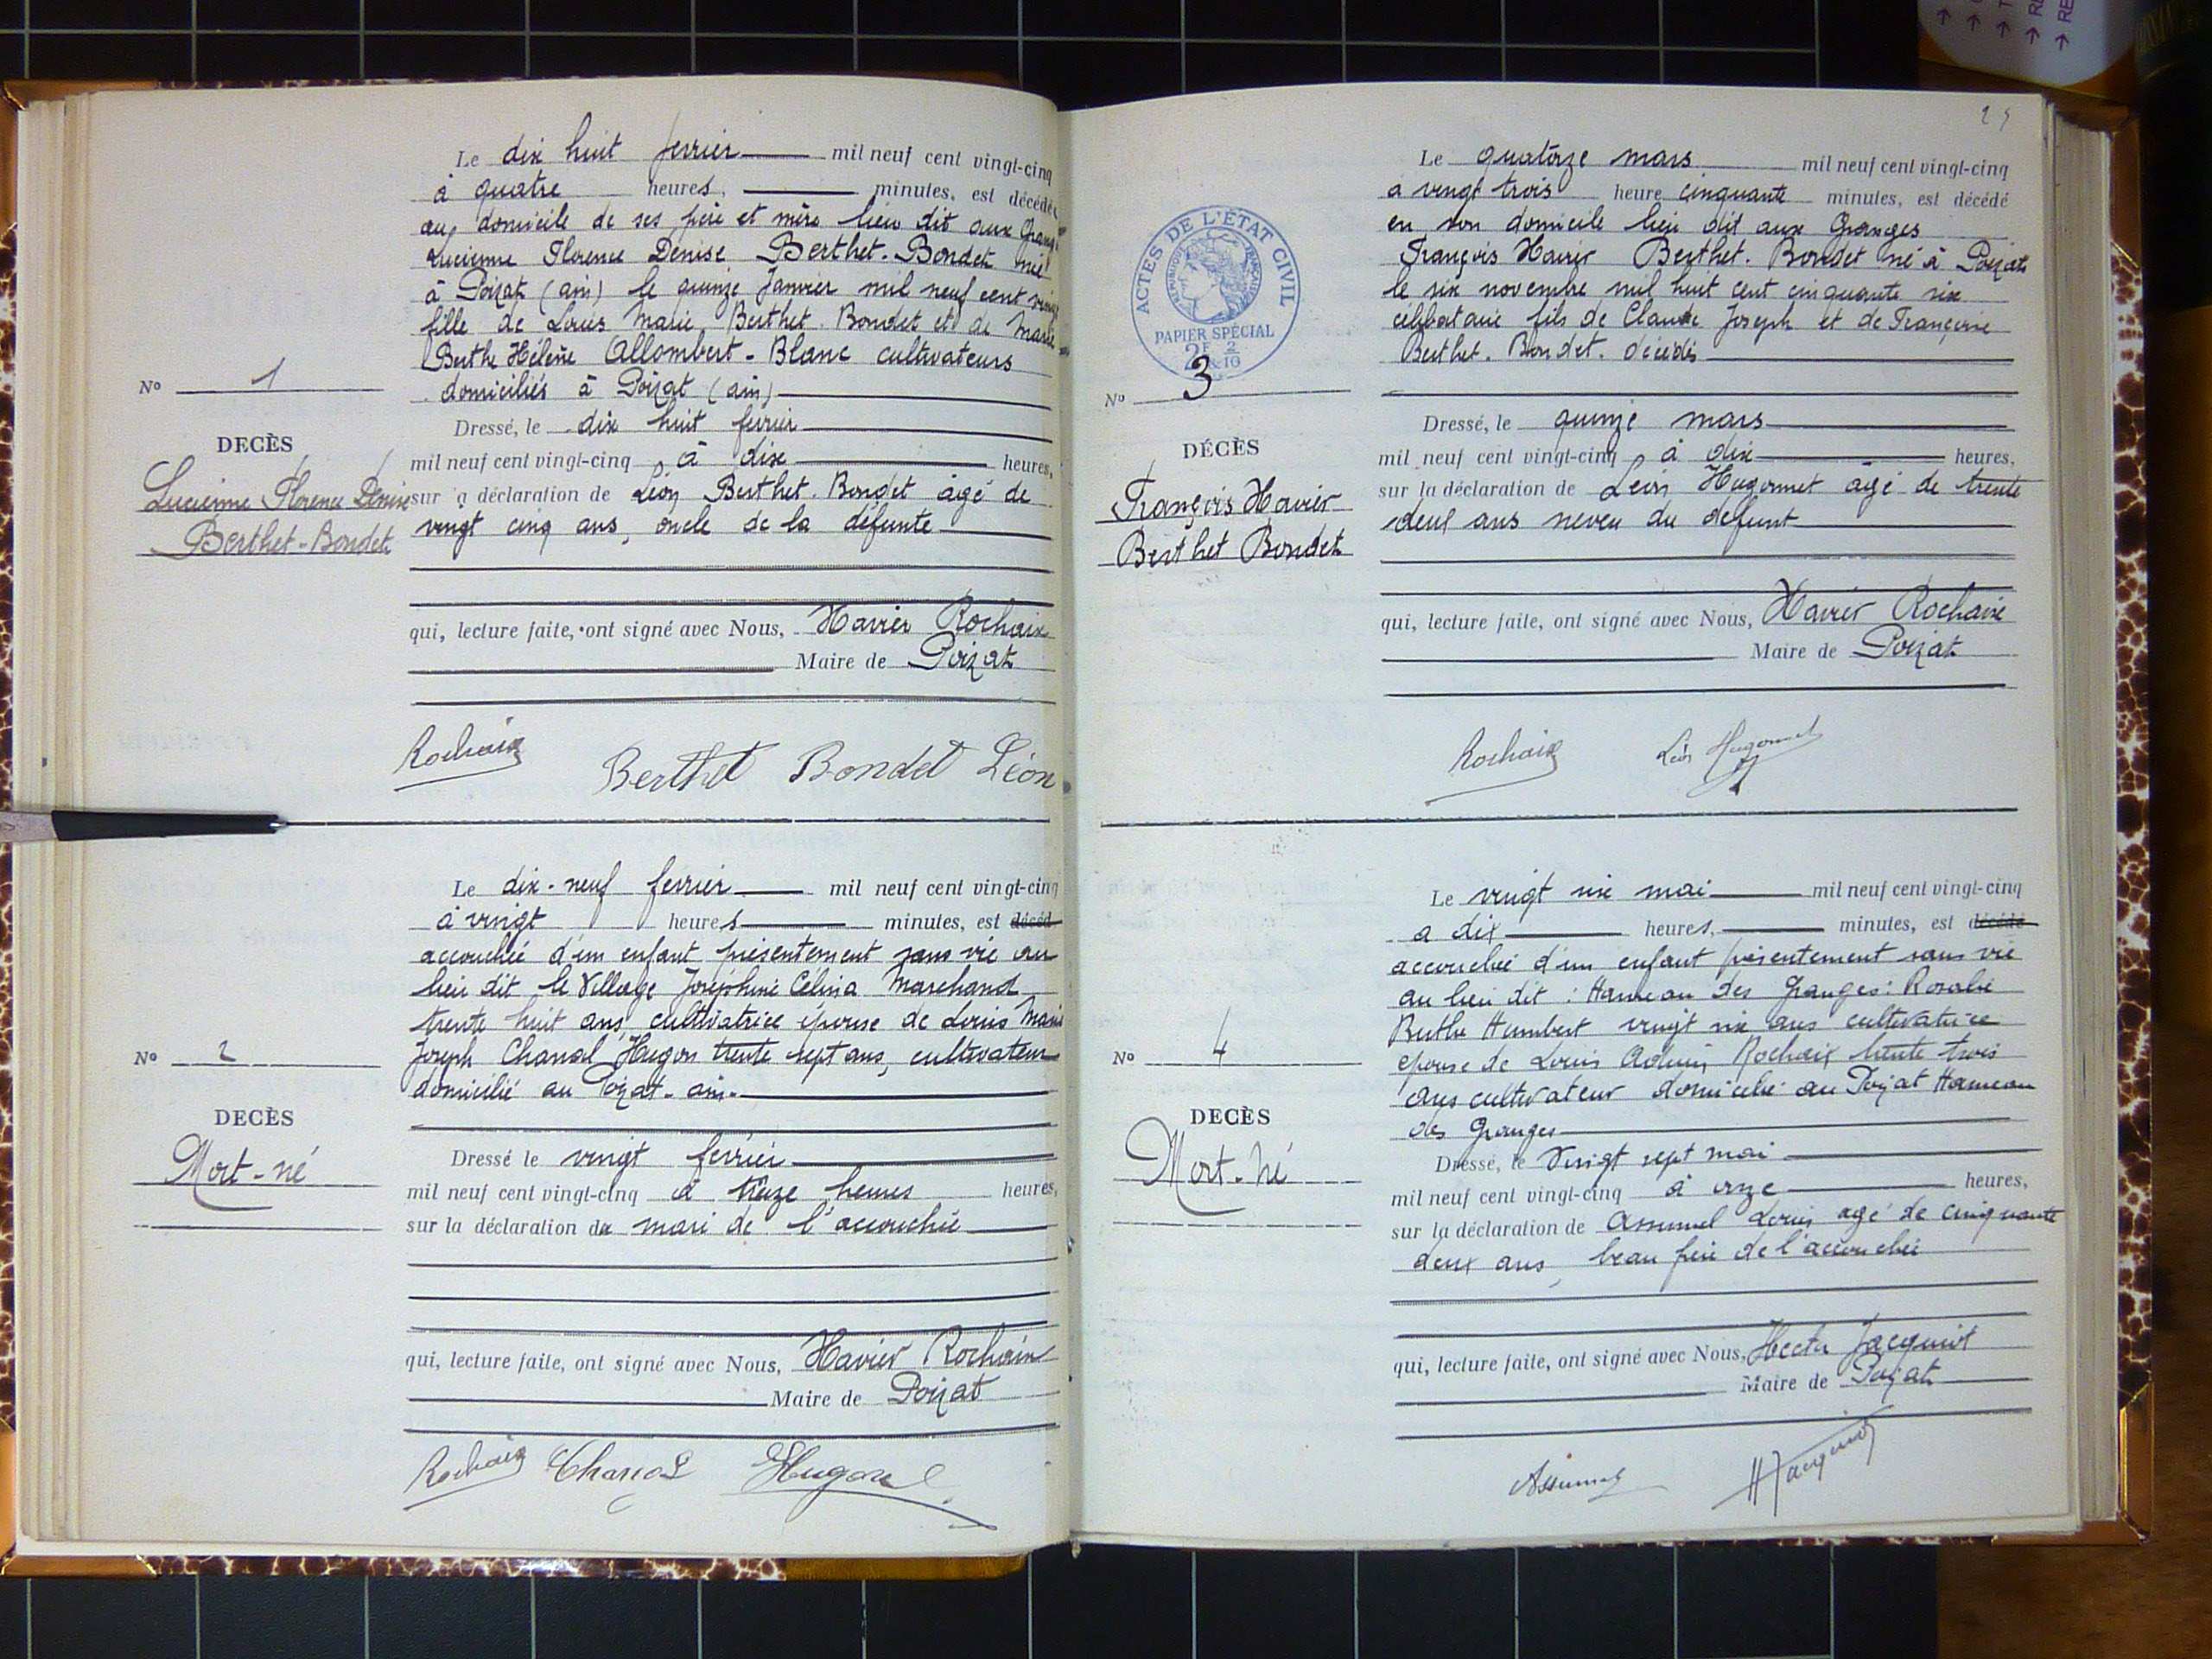 Le dix huit fevrier mil neuf cent vingt-cinq
à quatre heures, minutes, est décédée
au domicile de ses père et mère lieu dit aux Granges
Lucienne Florence Denise Berthet-Bondet née
à Poizat (ain) le quinze Janvier mil neuf cent vingt
fille de Louis Marie Berthet-Bondet et de Marie
Berthe Hélène Allombert-Blanc cultivateurs
domiciliés à Poizat (ain)
Nº 1
DECÈS
Lucienne Florence Denise
Berthet-Bondet
Dressé, le dix huit fevrier
mil neuf cent vingt-cinq à dix heures,
sur la déclaration de Léon Berthet-Bondet agé de
vingt cinq ans, oncle de la défunte
qui, lecture faite, ont signé avec Nous, Xavier Rochaix
Maire de Poizat
Rochaix Berthet Bondet Léon
Le dix-neuf fevrier mil neuf cent vingt-cinq
à vingt heures minutes, est décéd
accouchée d'un enfant présentement sans vie au
lieu dit le Village Joséphine Célina Marchand
trente huit ans, cultivatrice épouse de Louis Marie
Joseph Chanal Hugon trente sept ans, cultivateur
domicilié au Poizat-ain-
Nº 2
DECÈS
Mort-né
Dressé le vingt février
mil neuf cent vingt-cinq à treize heures heures,
sur la déclaration du mari de l'accouchée
qui, lecture faite, ont signé avec Nous, Xavier Rochaix
Maire de Poizat
Rochaix Hugon
Le quatorze mars mil neuf cent vingt-cinq
a vingt trois heure cinquante minutes, est décédé
en son domicile lieu dit aux Granges
François Xavier Berthet-Bondet né à Poizat
le six novembre mil huit cent cinquante six
célibataire fils de Claude Joseph et de Françoise
Berthet-Bondet. décédés
ACTES DE L'ÉTAT CIVIL
RÉPUBLIQUE FRANÇAISE
PAPIER SPÉCIAL
2F 2/10
Nº 3
DÉCÈS
François Xavier
Berthet Bondet
Dressé, le quinze mars
mil neuf cent vingt-cinq à dix heures,
sur la déclaration de Léon Hugonnet agé de trente
deux ans neveu du défunt
qui, lecture faite, ont signé avec Nous, Xavier Rochaix
Maire de Poizat
Rochaix Léon Hugonnet
Le vingt six mai mil neuf cent vingt-cinq
a dix heures, minutes, est décédé
accouchée d'un enfant présentement sans vie
au lieu dit : Hameau des Granges: Rosalie
Berthe Humbert vingt six ans cultivatrice
épouse de Louis Rochaix trente trois
ans cultivateur domicilié au Poizat Hameau
des Granges
Nº 4
DECÈS
Mort-né
Dressé, le Vingt sept mai
mil neuf cent vingt-cinq à onze heures,
sur la déclaration de Assumel Louis agé de cinquante
deux ans, beau père de l'accouchée
qui, lecture faite, ont signé avec Nous, Hector Jacquiot
Maire de Poizat
Assumel H Jacquiot